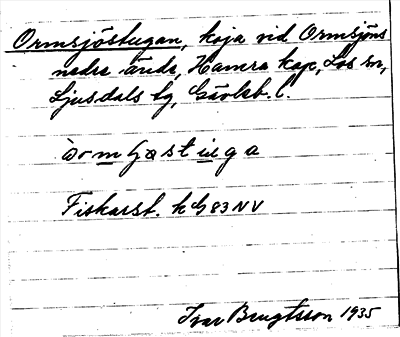 Ormsjöstugan, koja vid Ormsjöns
nedre ände, Hamra kap, Los sn,
Ljusdals tg, Gävleb. l.
ormhjøstuga
Fiskarst. k G 83 NV
Ivar Bengtsson 1935